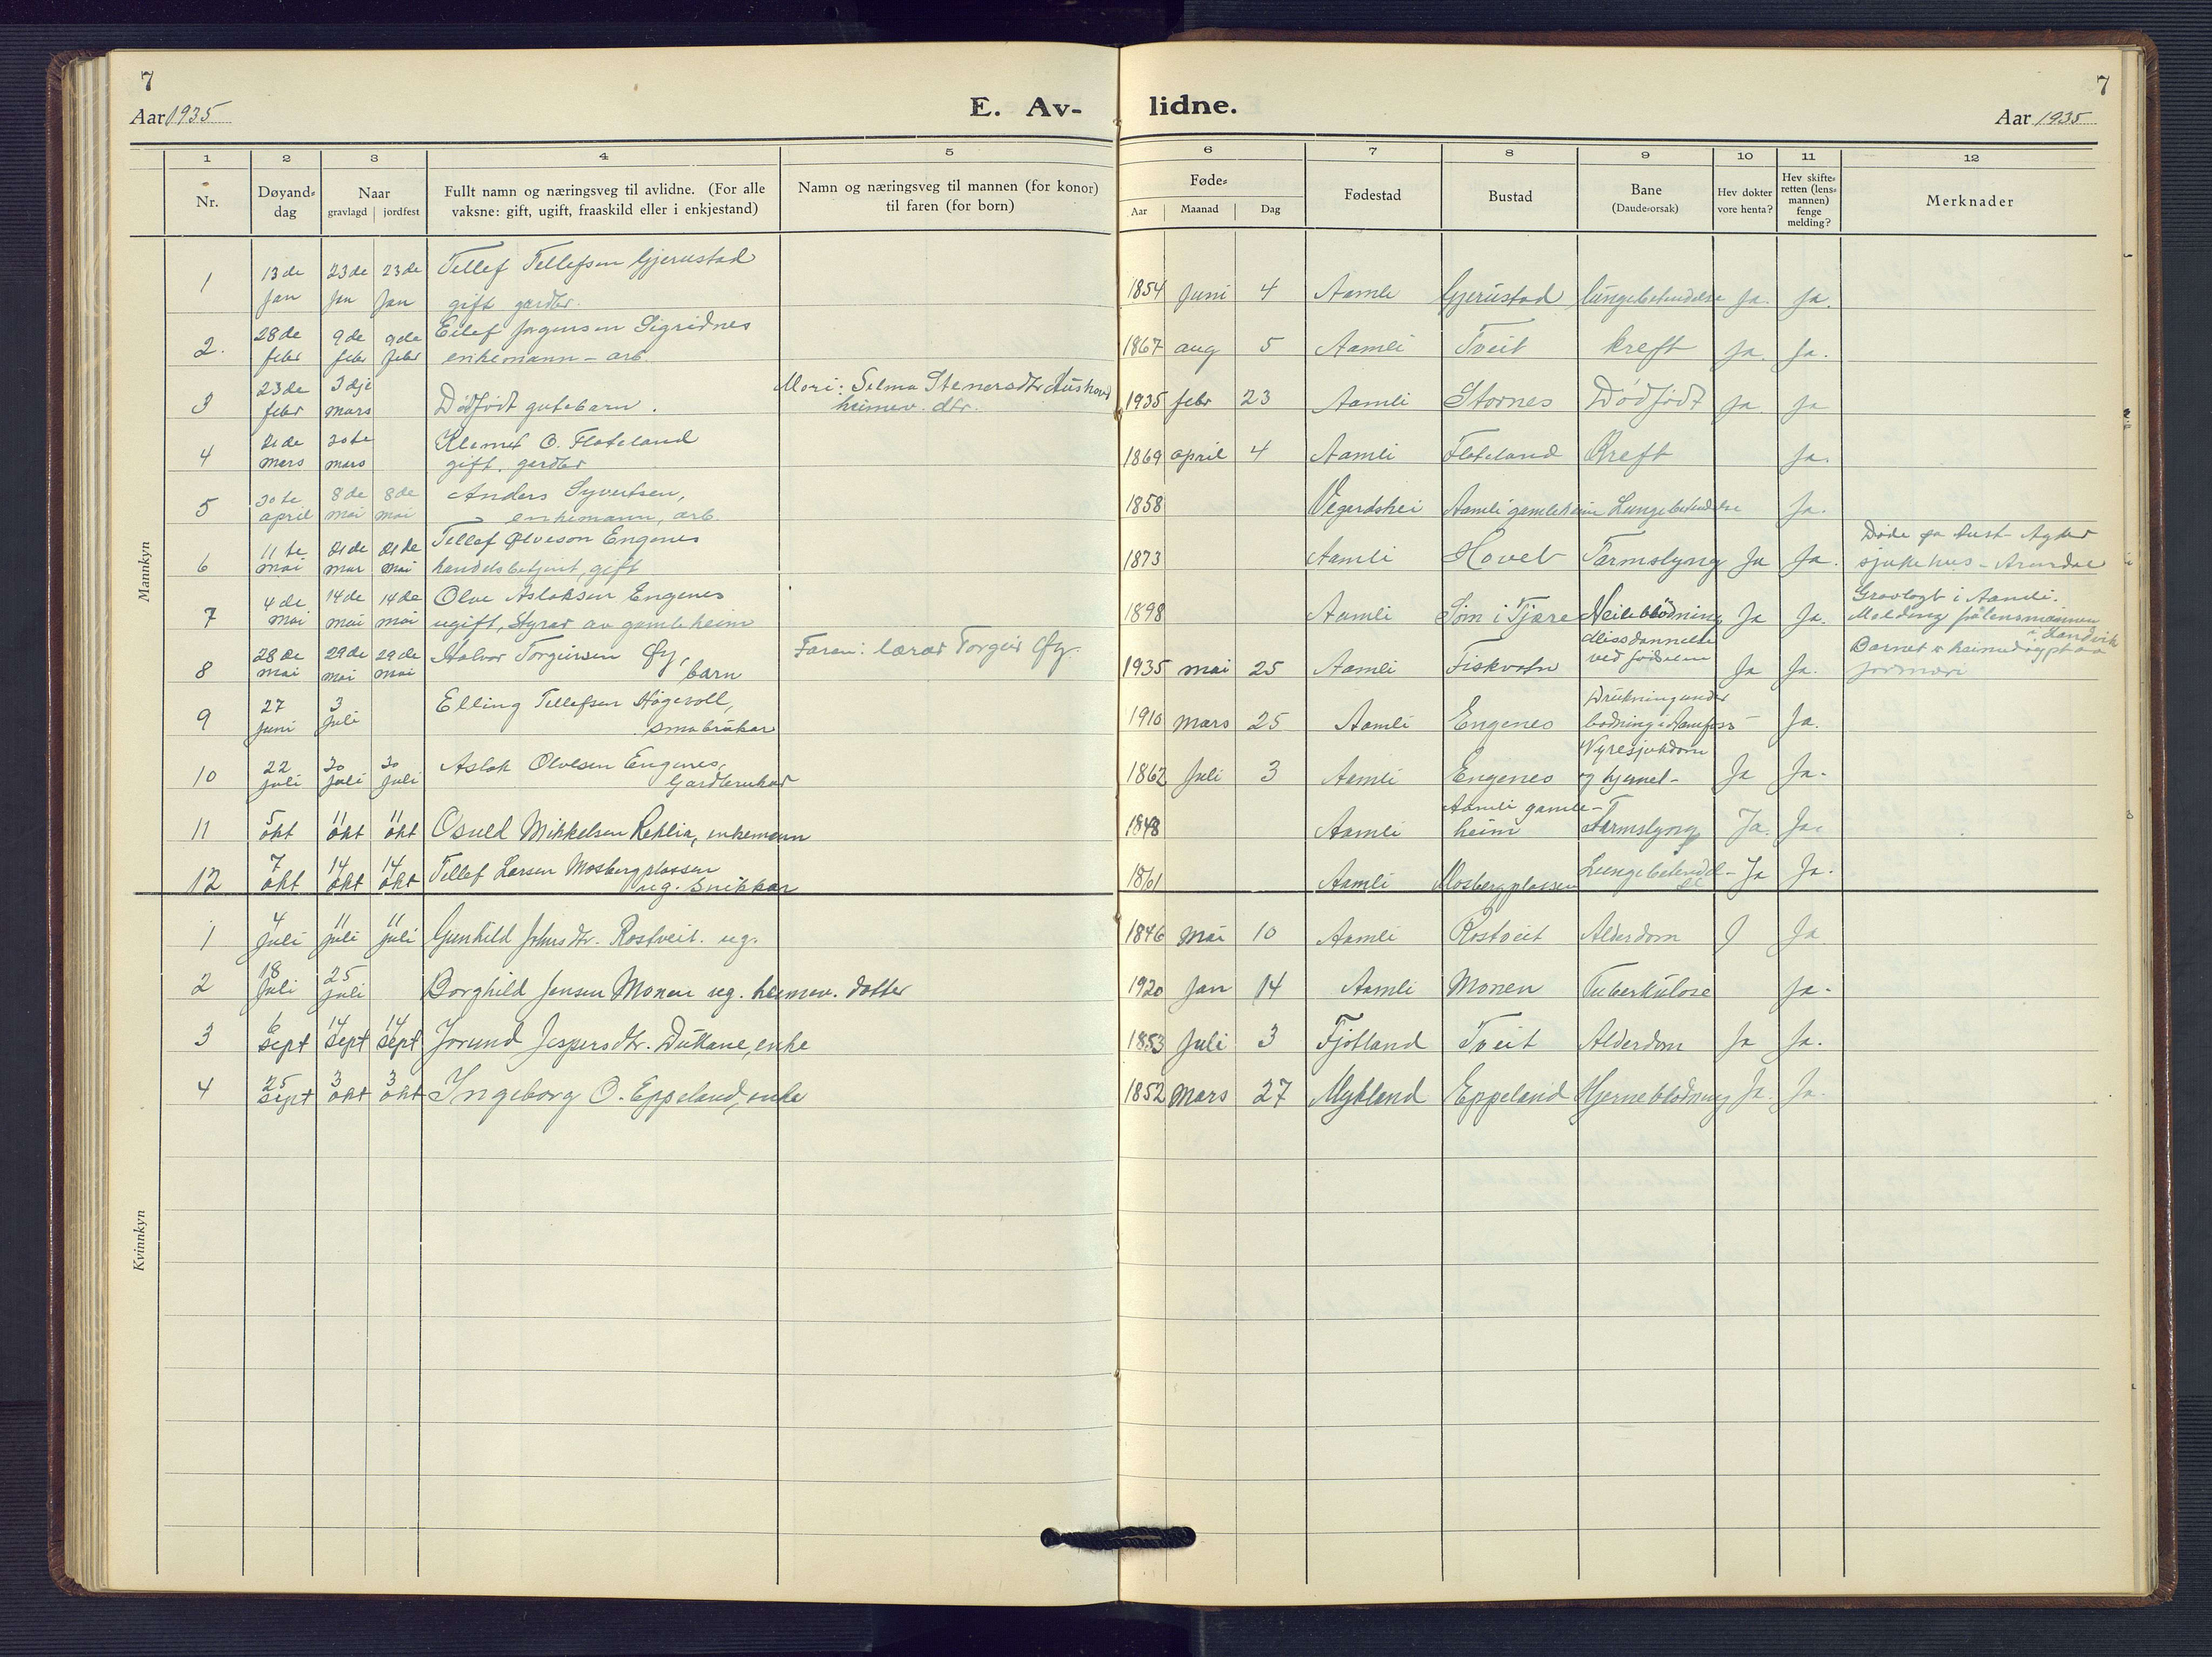 7
7
Aar 1935
E. Av-
lidne.
Aar 1935
1 2 3 4 5 6 7 8 9 10 11 12
Nr.
Døyand-
dag
Naar
gravlagd | jordfest
Fullt namn og næringsveg til avlidne. (For alle
vaksne: gift, ugift, fraaskild eller i enkjestand)
Namn og næringsveg til mannen (for konor)
til faren (for born)
Føde-
Aar Maanad Dag
Fødestad
Bustad
Bane
(Daude-orsak)
Hev dokter
vore henta?
Hev skifte-
retten (lens-
mannen)
fenge
melding?
Merknader
Mannkyn
1 13de jan 23de jan 23de jan Tellef Tellefsen Gjerustad
gift gardbr. 1854 juni 4 Aamli Gjerustad lungebetendelse ja. ja.
2. 28de febr 9de febr 9de febr Eilef Jorgensen Sigridnes
enkemann - arb. 1867 aug 5 Aamli Tveit kreft ja. ja.
3 23de febr 3dje mars Dødfødt gutebarn. Mori: Selma Stenersdtr
heimev. dtr. 1935 febr 23 Aamli Stornes Dødfødt ja ja
4 21de mars 30te mars Klemet O. Flateland
gift, gardbr 1869 april 4 Aamli Flateland Kreft ja.
5 30te april 8de mai 8de mai Anders Syvertsen,
enkemann, arb. 1858 Vegardshei Aamli gamleheim Lungebetendelse ja.
6 11te mai 21de mai 21de mai Tellef Olveson Engenes
handelsbetjent, gift 1873 Aamli Hovet Tarmslyng Ja Ja. Døde pa Aust-Agder
sjukehus - Arendal
7 4de mai 14de mai 14de mai Olve Aslaksen Engenes
ugift, Styrar av gamleheim 1898 Aamli Søm i Fjære Ja Ja. Gravlagt i Aamli.
Melding frå lensmannen
i Landvik
8 28de mai 29de mai 29de mai Halvor Torgeirsen Øy,
barn Faren: lærar Torgeir Øy. 1935 mai 25 Aamli Fiskvatn
ved fødselen Ja Ja. Barnet er heimedøypt av
jormori
9 27 juni 3 juli Elling Tellefsen Høgevoll,
småbrukar 1910 mars 25 Aamli Engenes Drukning under
badning i - Ja.
10 22 juli 30 juli 30 juli Aslak Olvesen Engenes,
Gardbrukar 1862 Juli 3 Aamli Engenes Nyresjukdom
og hjernebl- Ja Ja.
11 5 okt 11 okt 11 okt Osuld Mikkelsen Reklia, enkemann 1848 Aamli Aamli gamle-
heim Tarmslyng Ja. Ja.
12 7 okt 14 okt 14 okt Tellef Larsen Mosbergplassen
ug. Snikkar 1861 Aamli Mosbergplassen Lungebetendel-
se Ja Ja.
Kvinnkyn
1 4 juli 11 juli 11 juli Gunhild Johnsdtr. Rostveit. ug. 1846 Mai 10 Aamli Rostveit Alderdom J Ja
2 18 Juli 25 juli Borghild Jensen Monen ug. heimev. dotter 1920 Jan 14 Aamli Monen Tuberkulose Ja.
3 6 sept 14 sept 14 sept Jorund Jespersdtr. Duttane, enke 1853 Juli 3 Fjotland Tveit Alderdom Ja Ja.
4 25 sept 3 okt 3 okt Ingeborg O. Eppeland, enke 1852 Mars 27 Mykland Eppeland Hjerneblødning Ja. Ja.